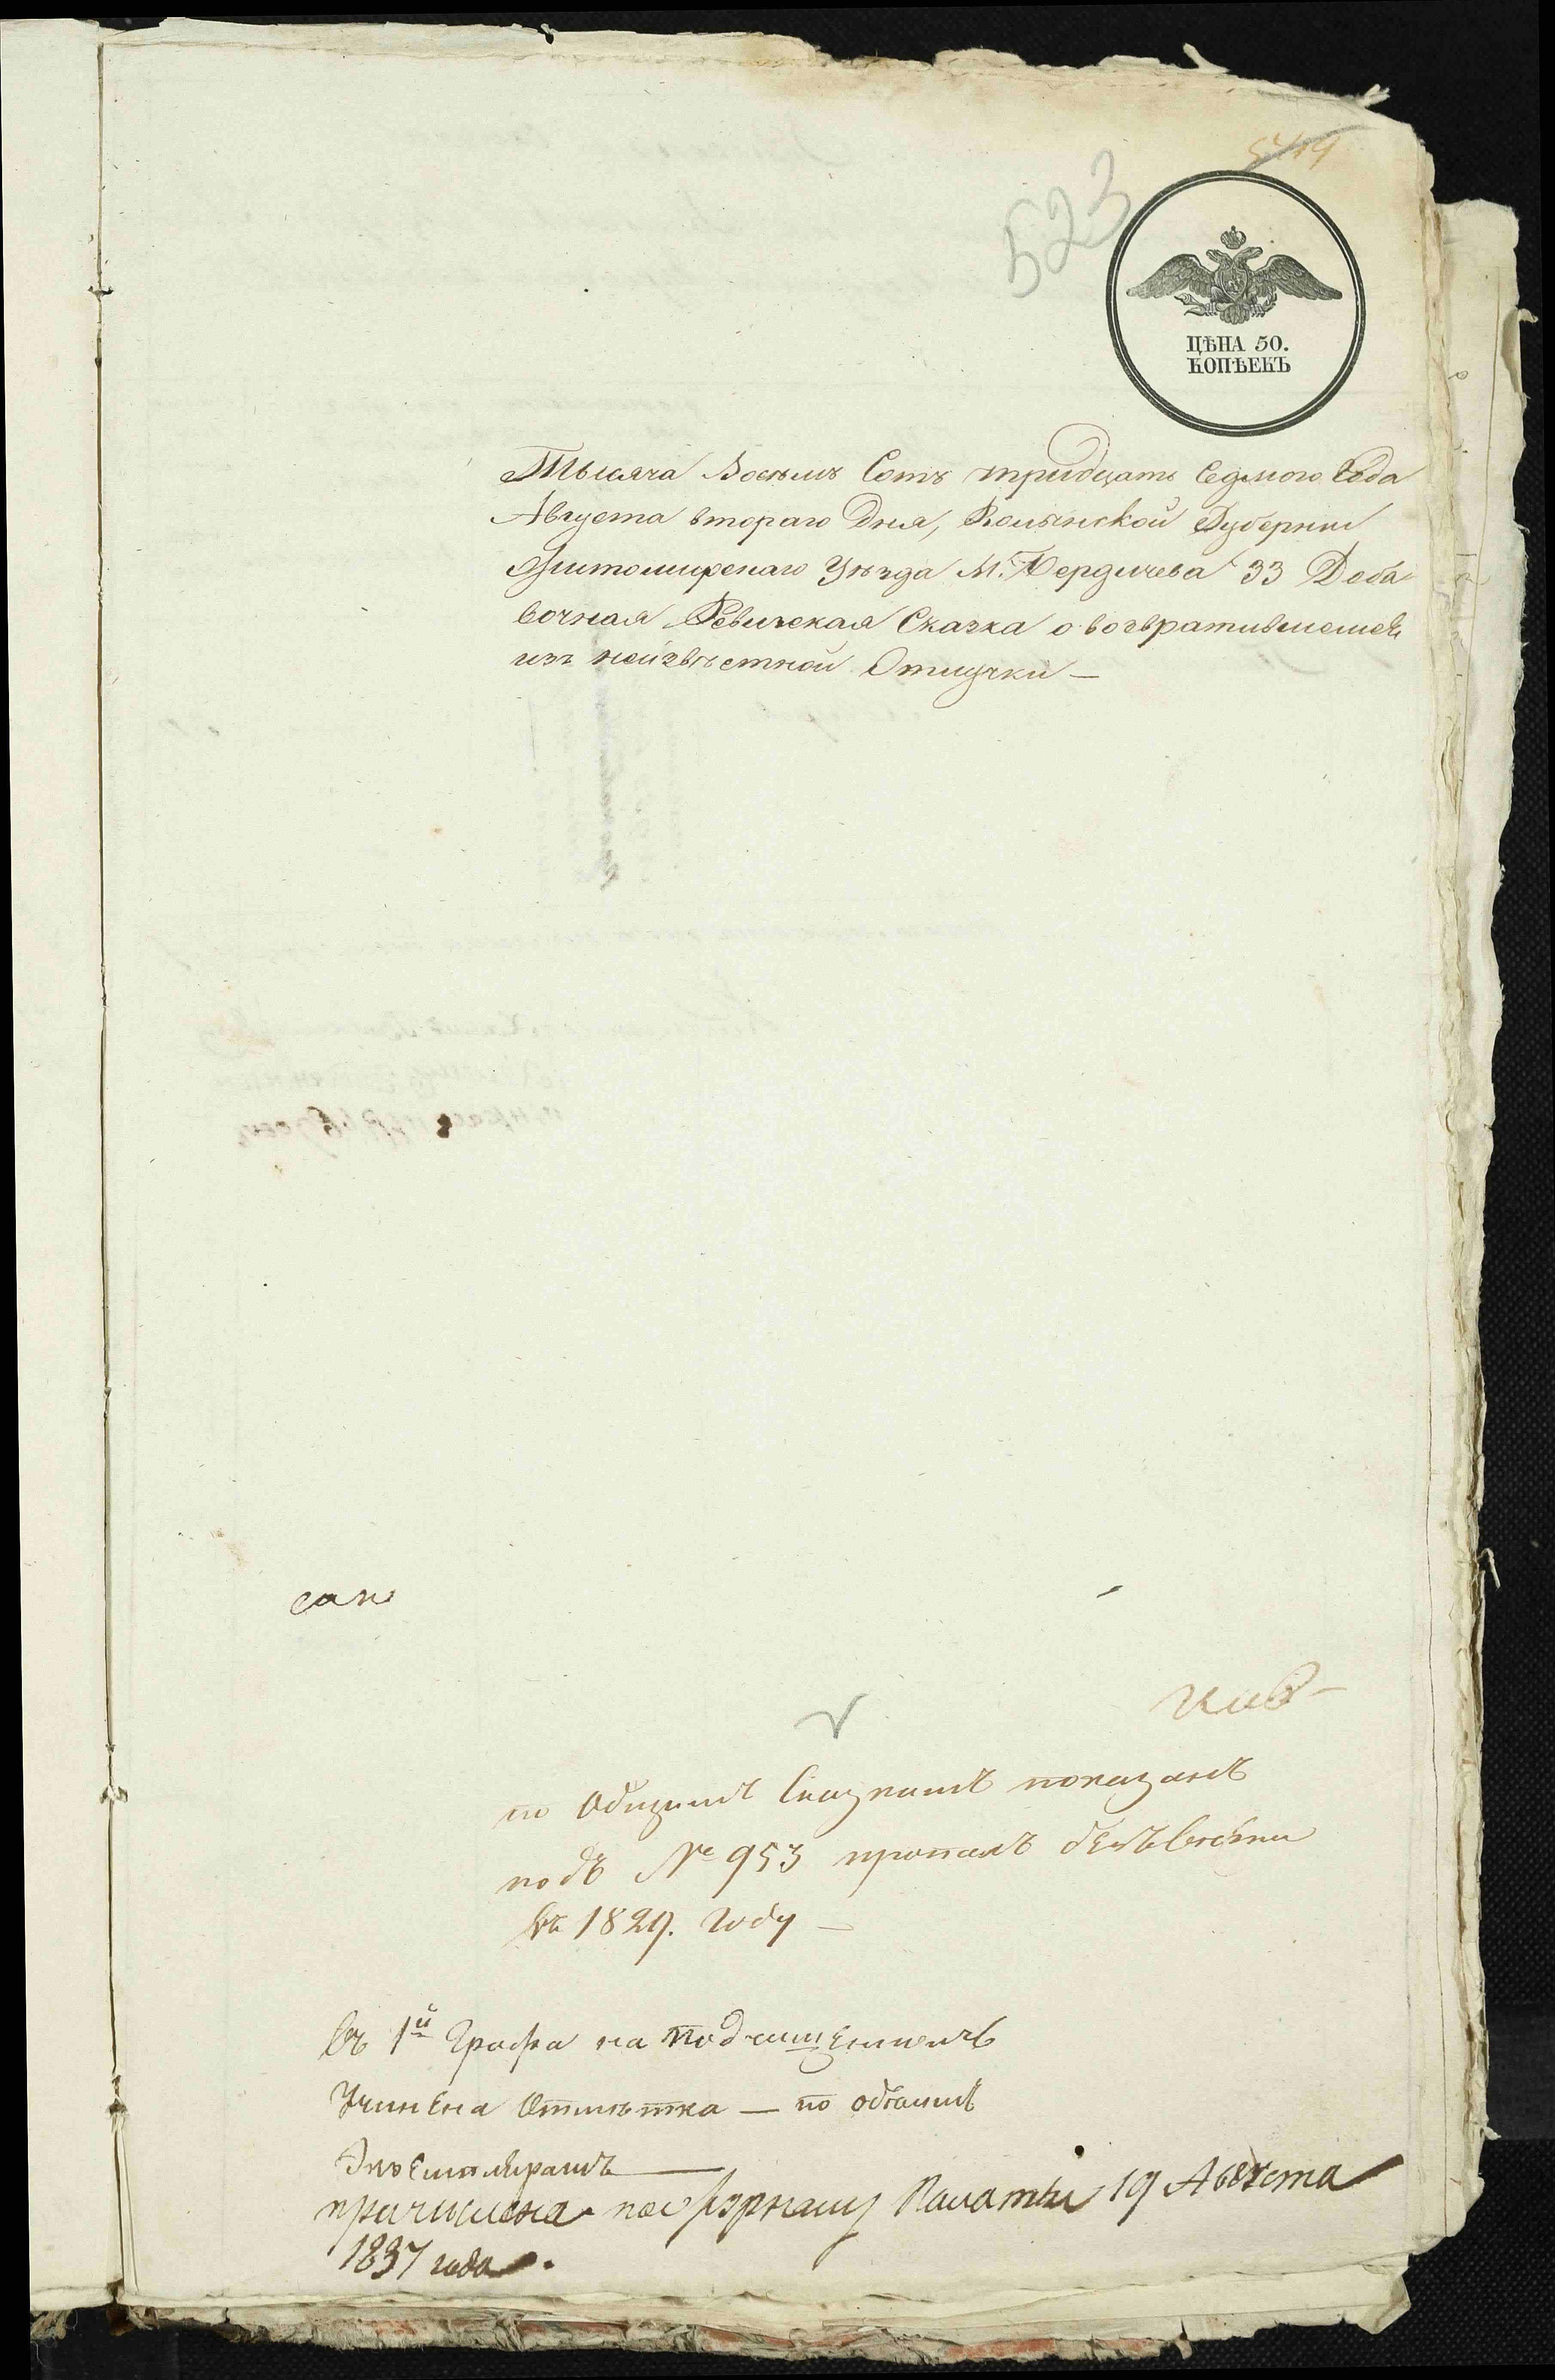 523
ЦѢНА 50.
КОПѢЕКЪ
Тысяча Восѣмъ Сотъ тридцать Седмого Года
Августа втораго Дня, Волынской Губернии
Житомирскаго Уѣзда М. Бердичева 33 Доба
вочная Ревизская Сказка о возвратившемся
изъ неизвѣстной Отлучки —
по Общимъ Сказкамъ показанъ
подъ № 953 пропалъ безъ вести
въ 1829. Году —
Въ 1й Графа на
Учинена Отмѣтка — по обоимъ
Экземплярамъ —
причислена по Журналу Палаты 19 Августа
1837 года.